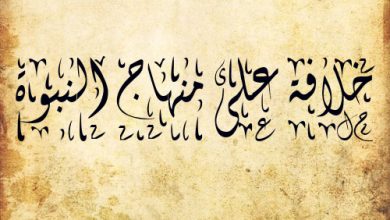 خلافة على منهاج النبوة